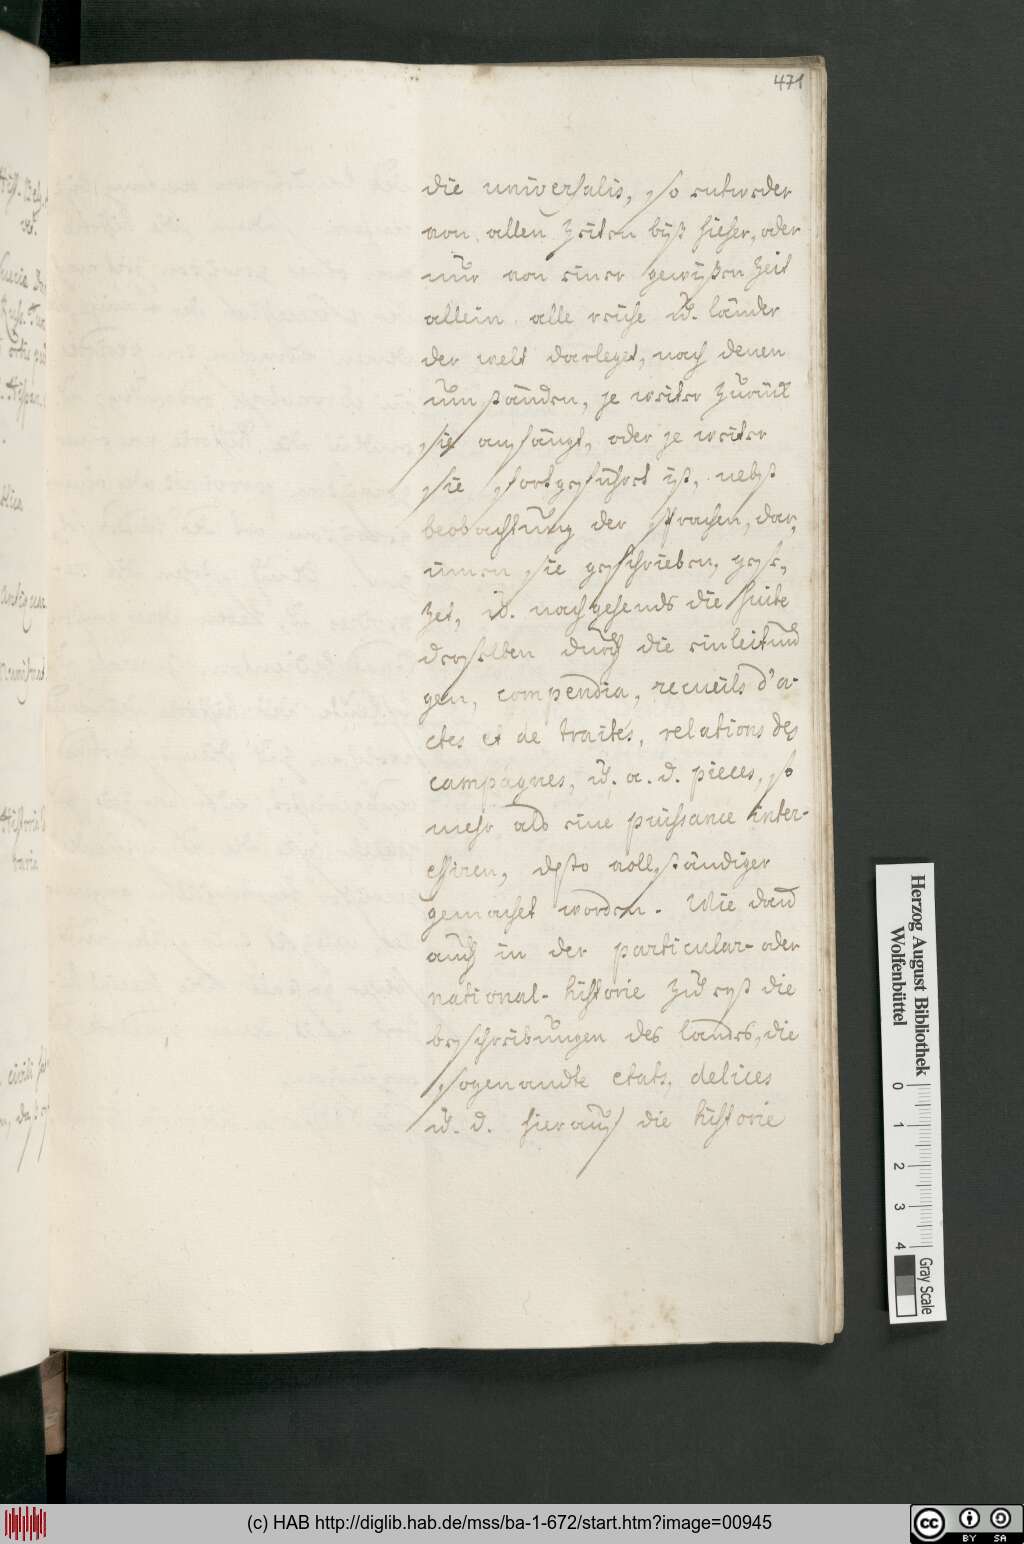 471
die universalis, so entweder
von allen Zeiten biß hieher, oder
nur von einer gewißen Zeit
allein alle reiche u. länder
der welt darleget, nach denen
umständen, je weiter zurück
sie anfängt, oder je weiter
sie fortgeführet ist, nebst
beobachtung der sprachen, dar,
innen sie geschrieben, gese,
zet, u. nachgehends die suite
derselben durch die einleitun
gen, compendia, recueils d'a-
ctes et de traités, relations des
campagnes, u. a. d. pieces, so
mehr als eine puissance inter-
essiren, desto vollständiger
gemachet worden. Wie dann
auch in der particular- oder
national- historie zu erst die
beschreibungen des landes, die
sogenandte etats, delices
u. d. hierauf die historie
Herzog August Bibliothek
Wolfenbüttel
0 1 2 3 4
Gray Scale
(c) HAB http://diglib.hab.de/mss/ba-1-672/start.htm?image=00945
cc BY SA